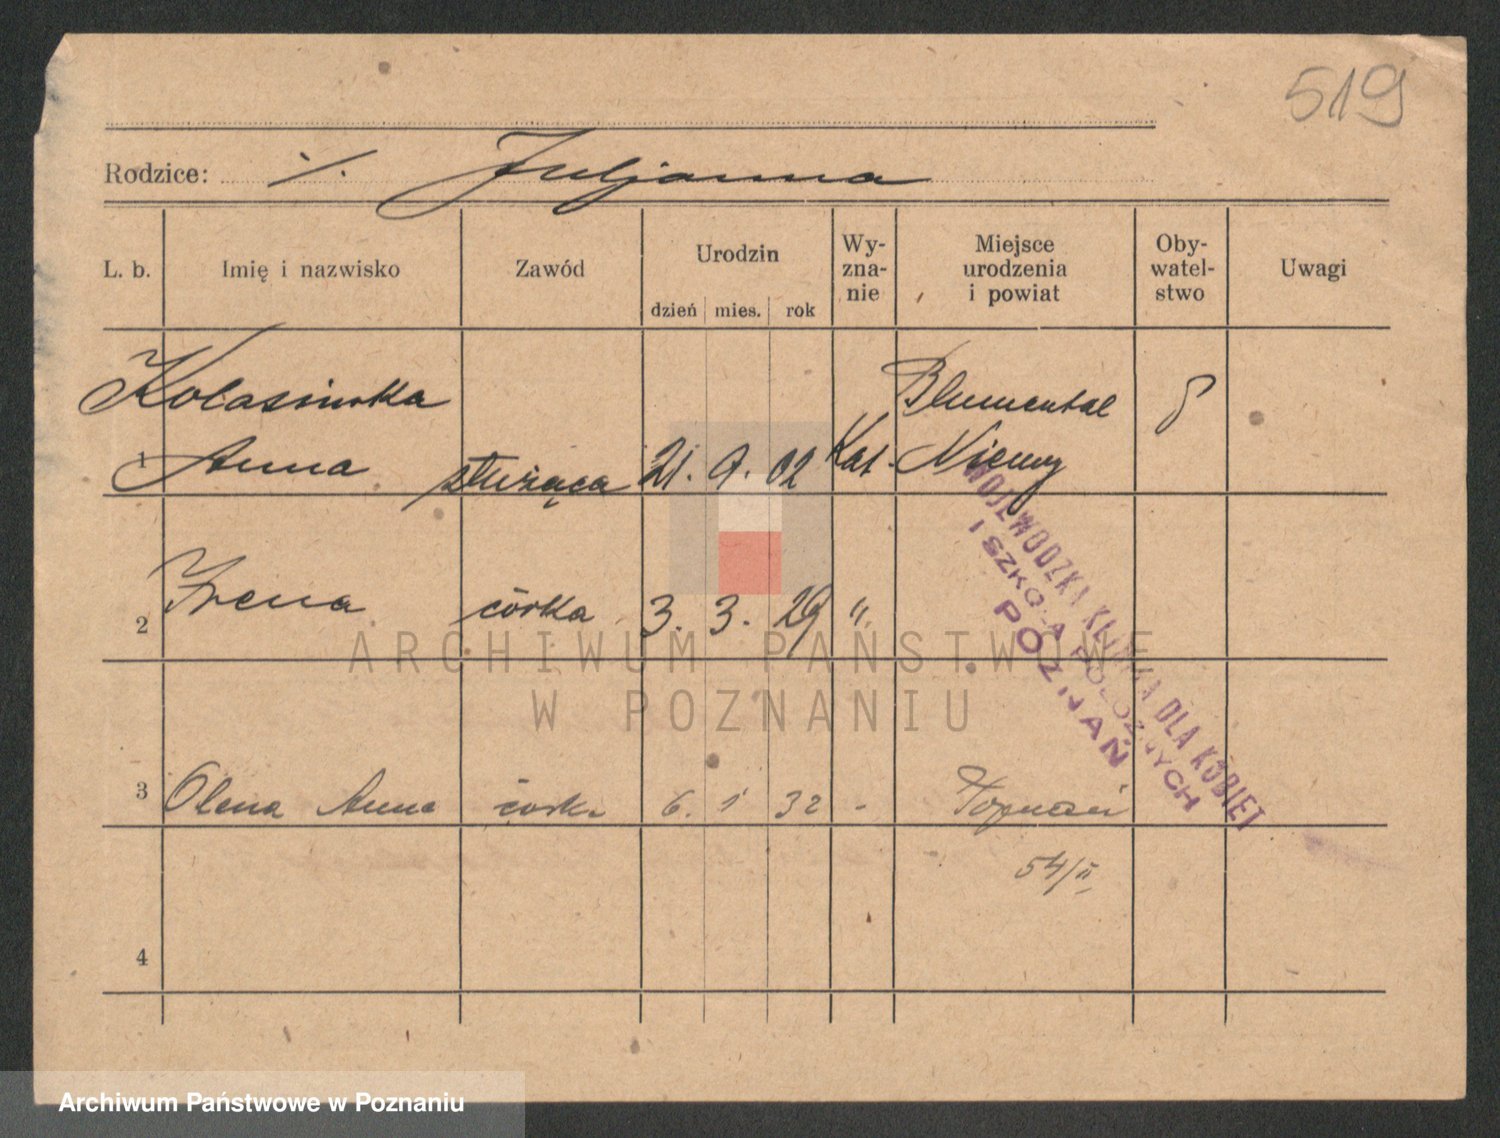 519
Rodzice: ./. Juljanna
L. b. Imię i nazwisko Zawód Urodzin dzień mies. rok Wy-zna-nie Miejsce urodzenia i powiat Oby-watel-stwo Uwagi
Kolasińska Blumental
1 Anna służąca 21. 9. 02 Kat. Niemcy
2 Irena córka 3. 3. 29 "
3 Olena Anna córka 6. 1 32 - Poznań
54/II
4
WOJEWÓDZKA KLINIKA DLA KOBIET
I SZKOŁA POŁOŻNYCH
POZNAŃ
ARCHIWUM PAŃSTWOWE
W POZNANIU
Archiwum Państwowe w Poznaniu